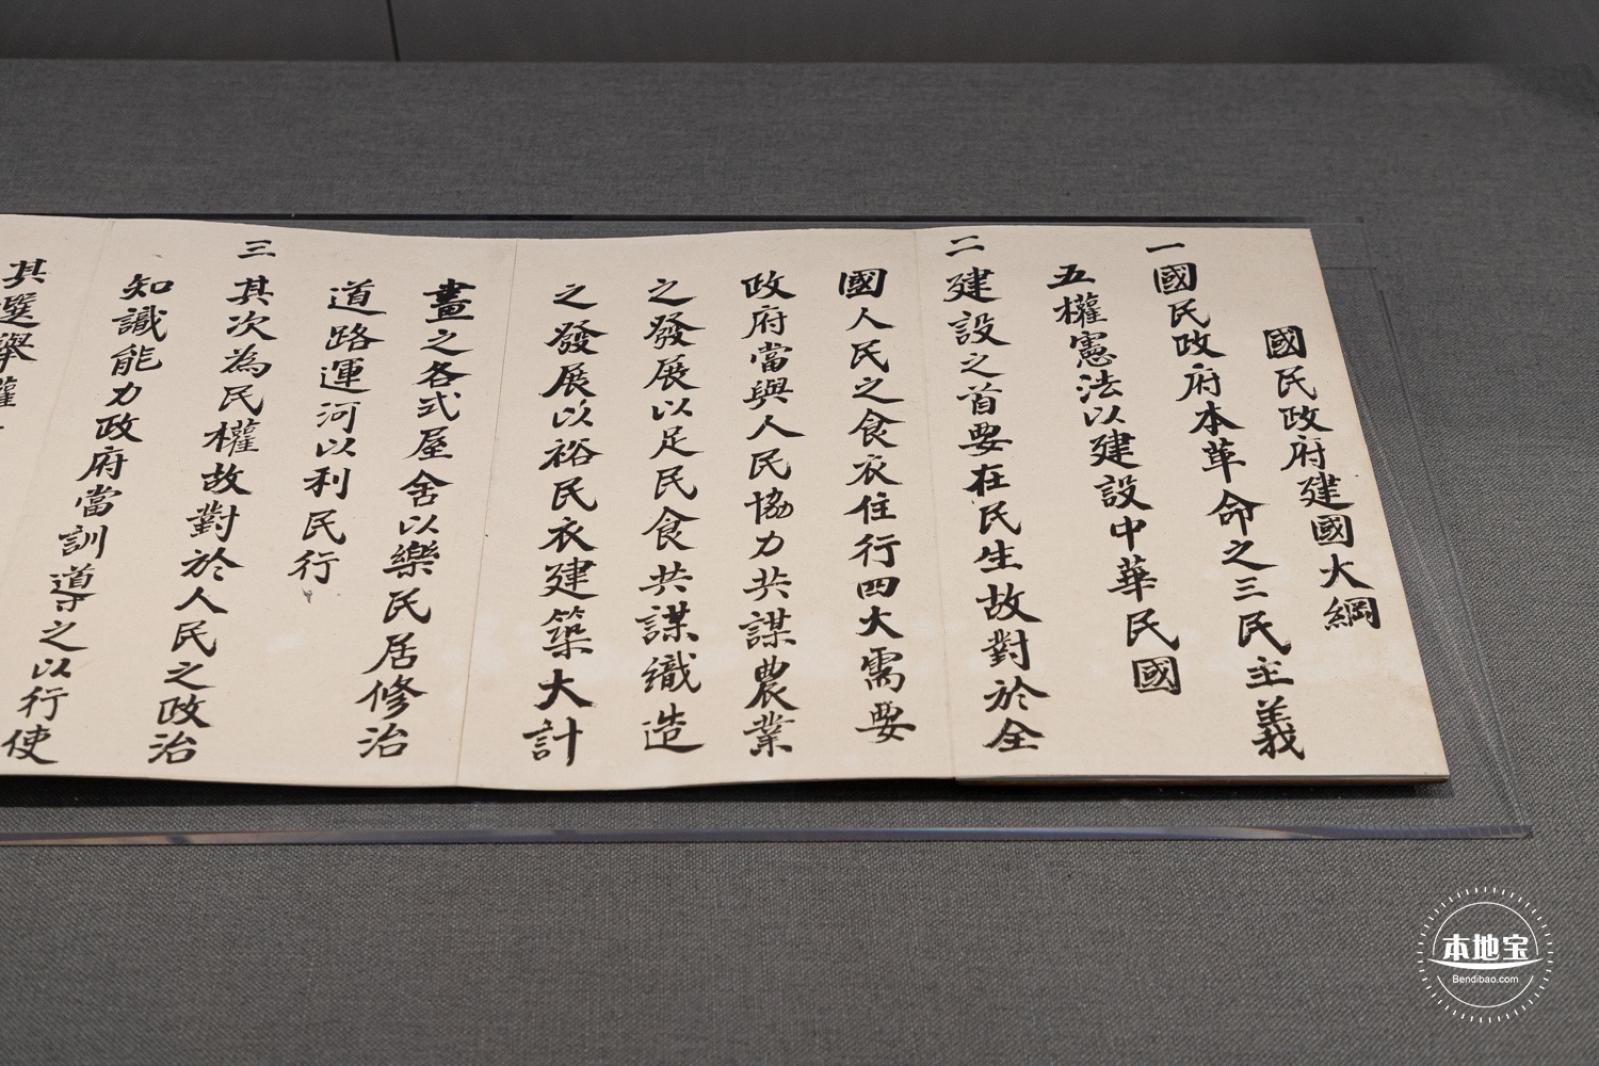 國民政府建國大綱
一國民政府本革命之三民主義
五權憲法以建設中華民國
二建設之首要在民生故對於全
國人民之食衣住行四大需要
政府當與人民協力共謀農業
之發展以足民食共謀織造
之發展以裕民衣建築大計
畫之各式屋舍以樂民居修治
道路運河以利民行
三其次為民權故對於人民之政治
知識能力政府當訓導之以行使
其選舉權
本地宝
Bendibao.com